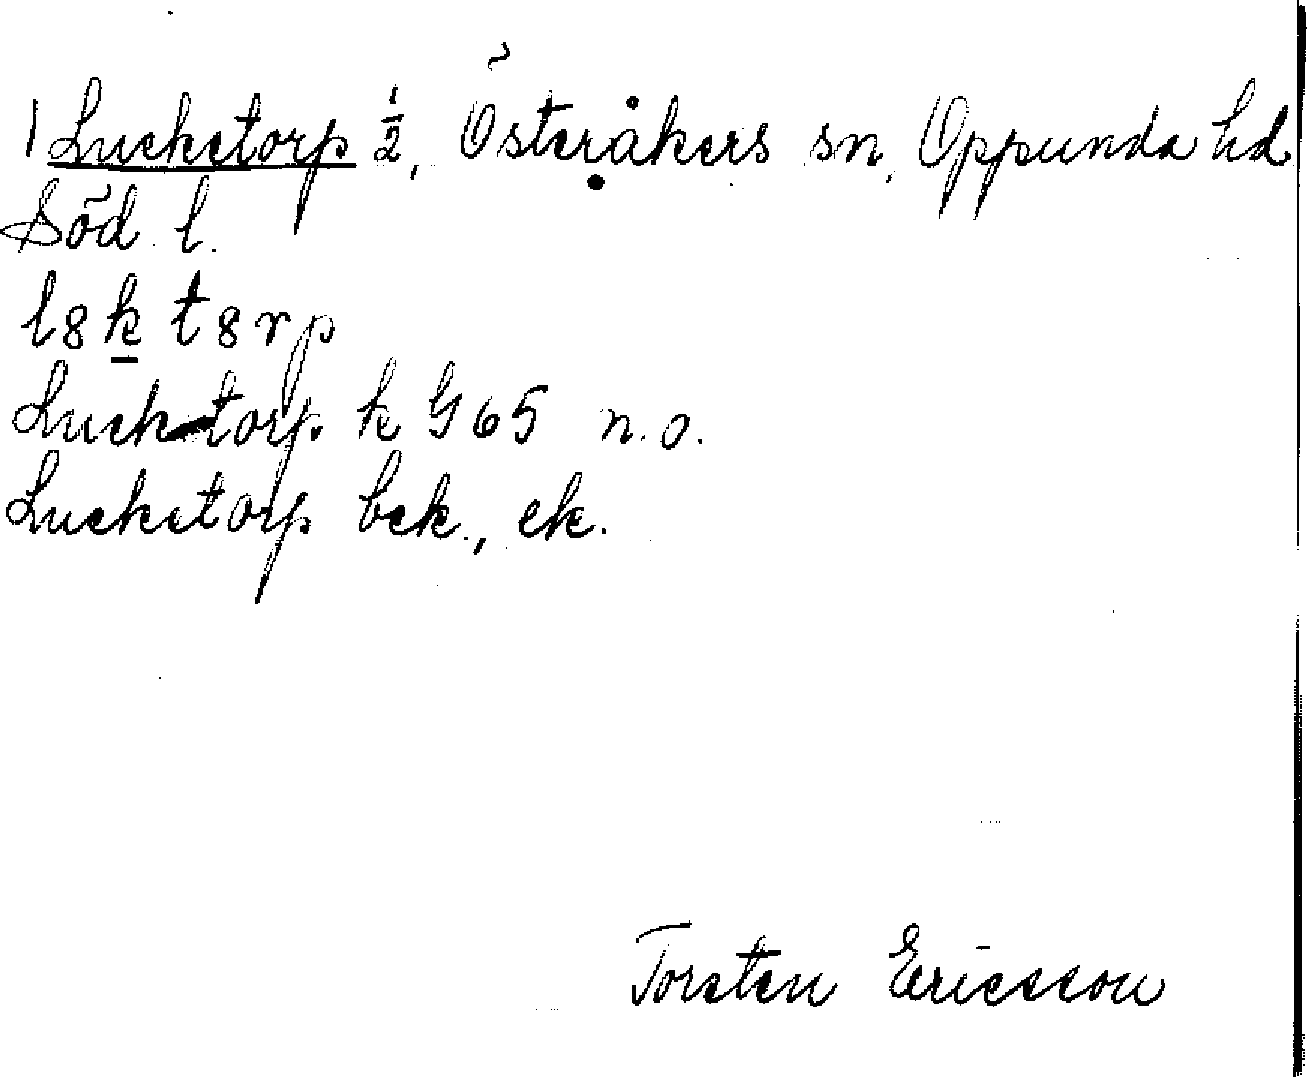 1 Luckstorp ½, Österåkers sn, Oppunda hd
Söd l.
l8k t8rp
Lucktorp k G65 n.o.
Luckstorp bek., ek.
Torsten Ericsson